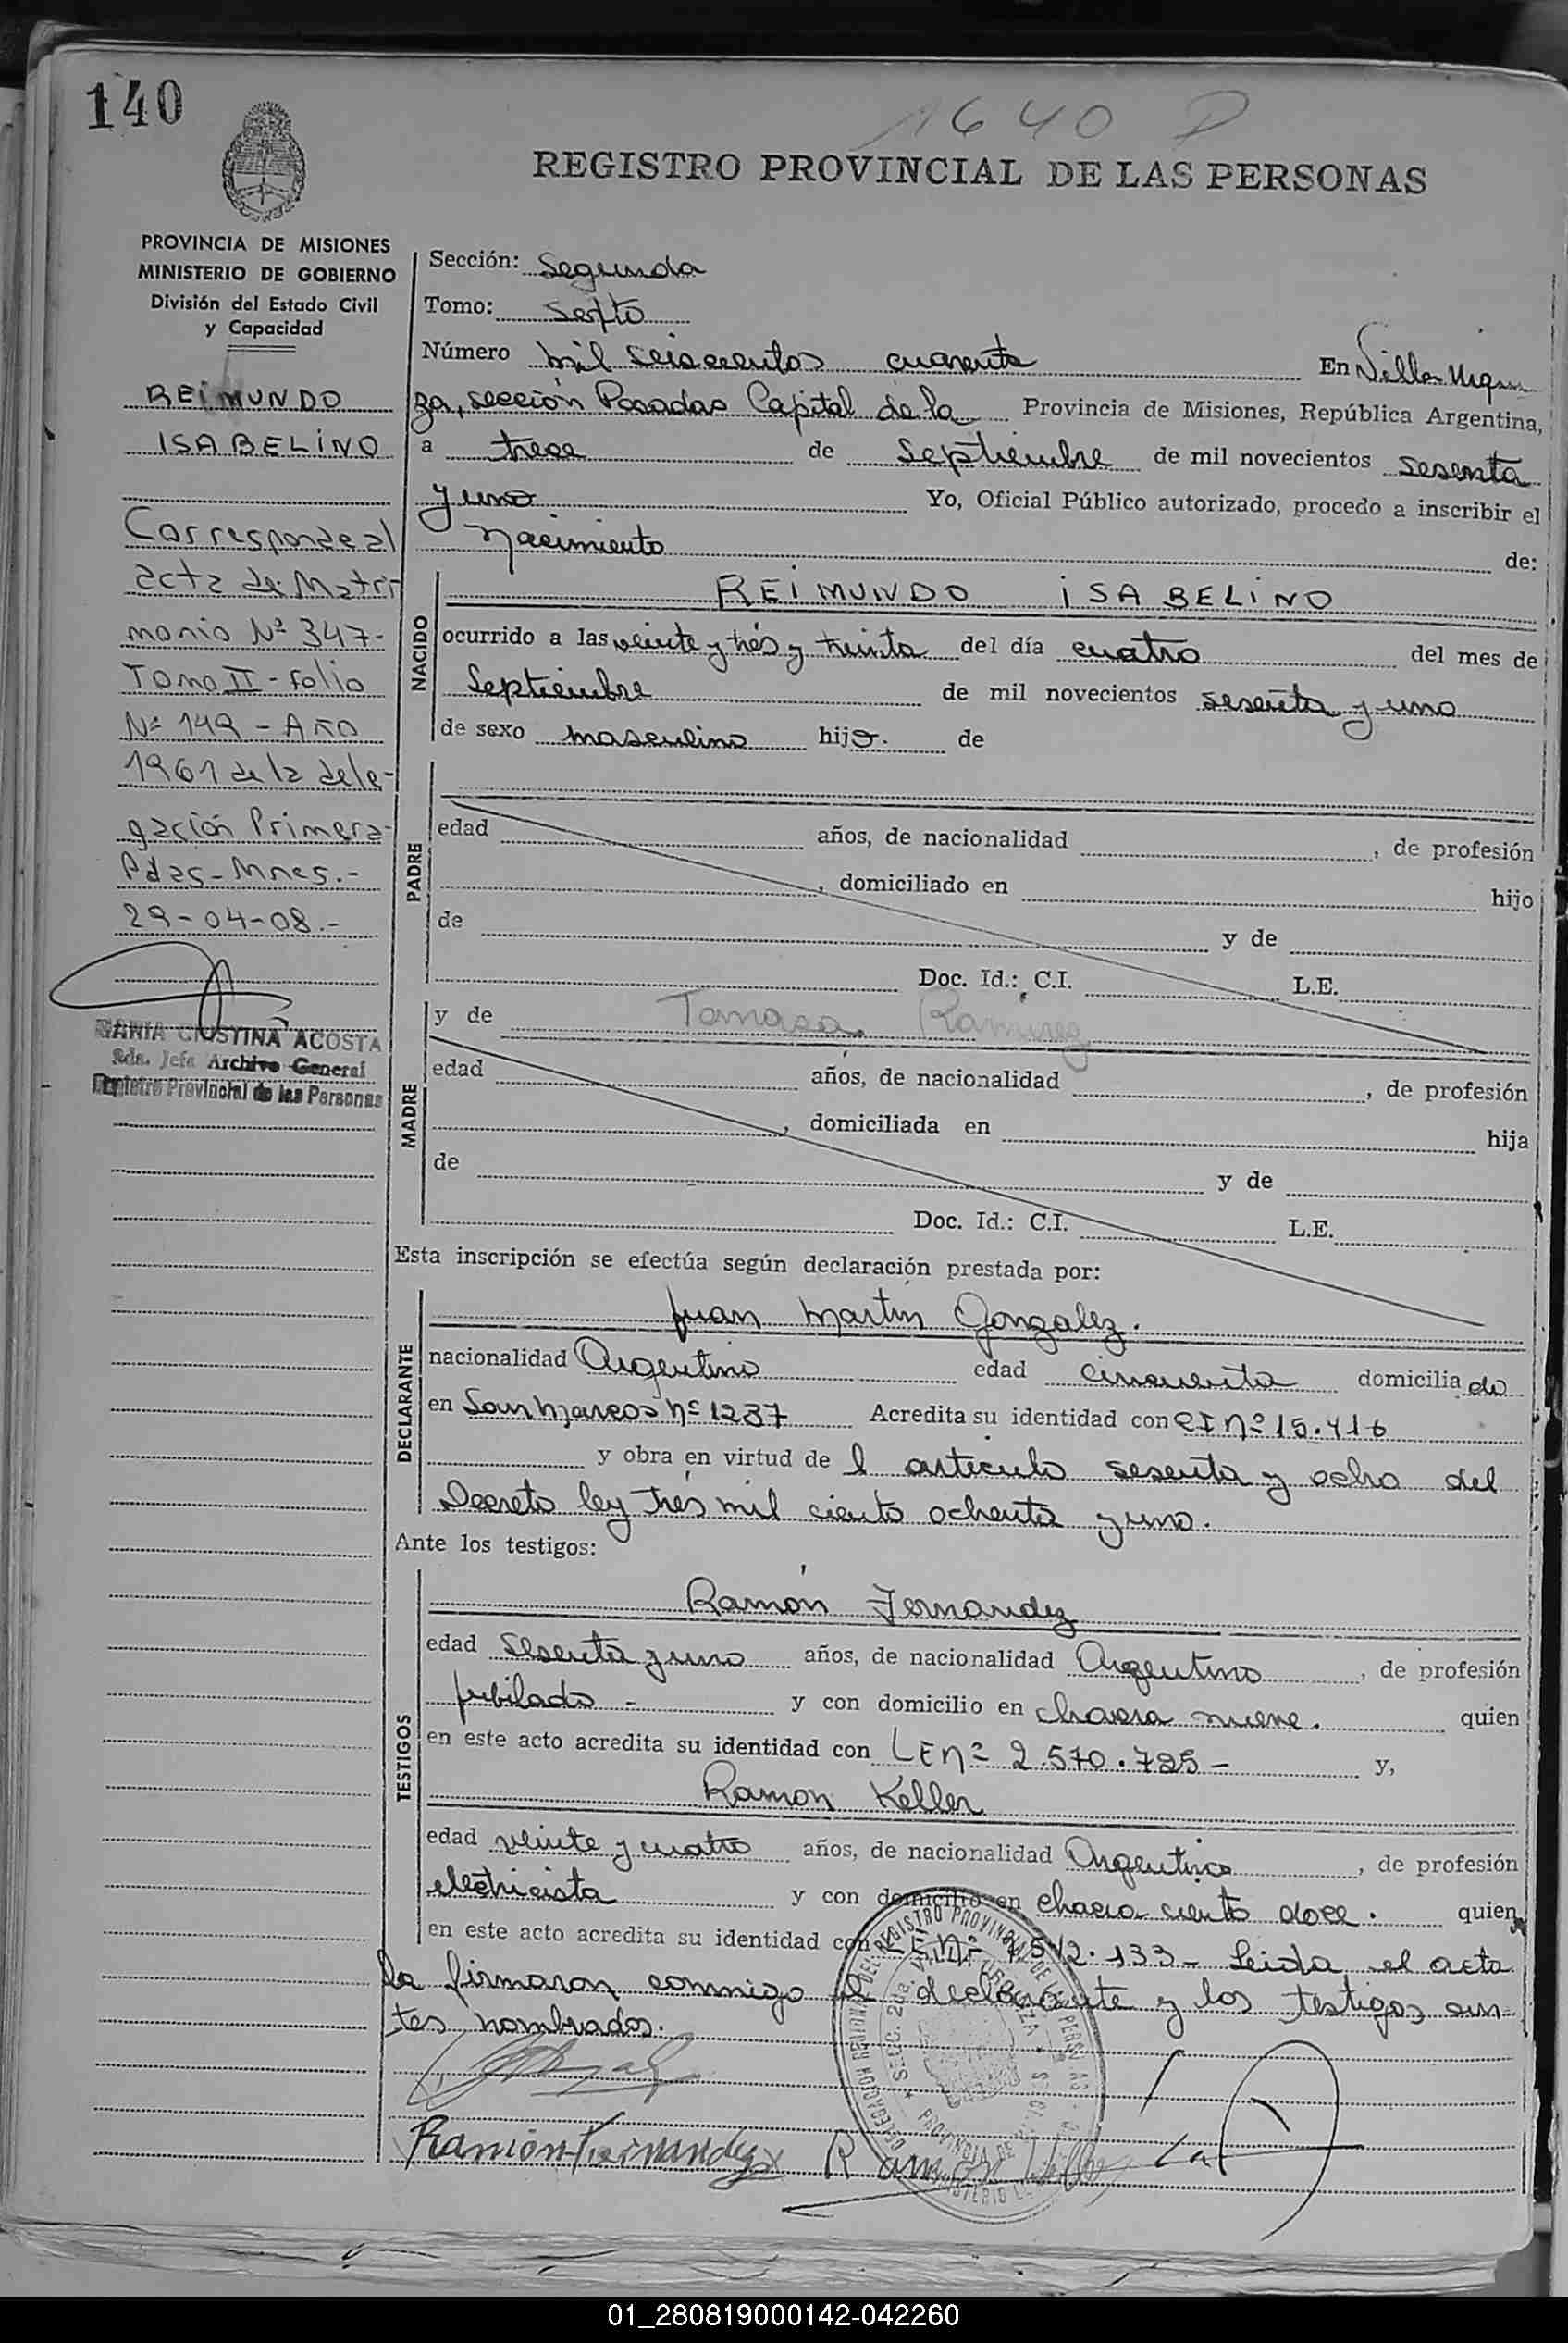 140
1640 D
REGISTRO PROVINCIAL DE LAS PERSONAS
PROVINCIA DE MISIONES
MINISTERIO DE GOBIERNO
División del Estado Civil
y Capacidad
REIMUNDO
ISABELINO
Corresponde al
acta de Matri-
monio Nº 347-
Tomo II - folio
Nº 149 - Año
1961 de la dele-
gación Primera-
Pdas - Mnes.-
29-04-08.-
MARIA CRISTINA ACOSTA
Sda. Jefe Archivo General
Registro Provincial de las Personas
Sección: Segunda
Tomo: Sexto
Número mil seiscientos cuarenta En Villa Urqui
za, sección Posadas Capital de la Provincia de Misiones, República Argentina,
a trece de Septiembre de mil novecientos sesenta
y uno Yo, Oficial Público autorizado, procedo a inscribir el
Nacimiento de:
NACIDO
REIMUNDO ISABELINO
ocurrido a las veinte y trés y treinta del día cuatro del mes de
Septiembre de mil novecientos sesenta y uno
de sexo masculino hijo. de
PADRE
edad años, de nacionalidad , de profesión
, domiciliado en hijo
de y de
Doc. Id.: C.I. L.E.
MADRE
y de Tomasa Ramirez
edad años, de nacionalidad , de profesión
, domiciliada en hija
de y de
Doc. Id.: C.I. L.E.
Esta inscripción se efectúa según declaración prestada por:
DECLARANTE
Juan Martín Gonzalez.
nacionalidad Argentino edad cincuenta domiciliado
en San Marcos nº 1237 Acredita su identidad con CI nº 15.416
y obra en virtud de l artículo sesenta y ocho del
Decreto ley trés mil ciento ochenta y uno.
Ante los testigos:
TESTIGOS
Ramón Fernandez
edad Sesenta y uno años, de nacionalidad Argentino , de profesión
jubilado - y con domicilio en chacra nueve. quien
en este acto acredita su identidad con LE nº 2.570.725 - y,
Ramon Keller
edad veinte y cuatro años, de nacionalidad Argentino , de profesión
electricista y con domicilio en chacra ciento doce. quien
en este acto acredita su identidad con LE Nº 7.542.133 - Leida el acta
la firmaron conmigo el declarante y los testigos an-
tes nombrados.
Ramón Fernandez Ramon Keller
01_280819000142-042260